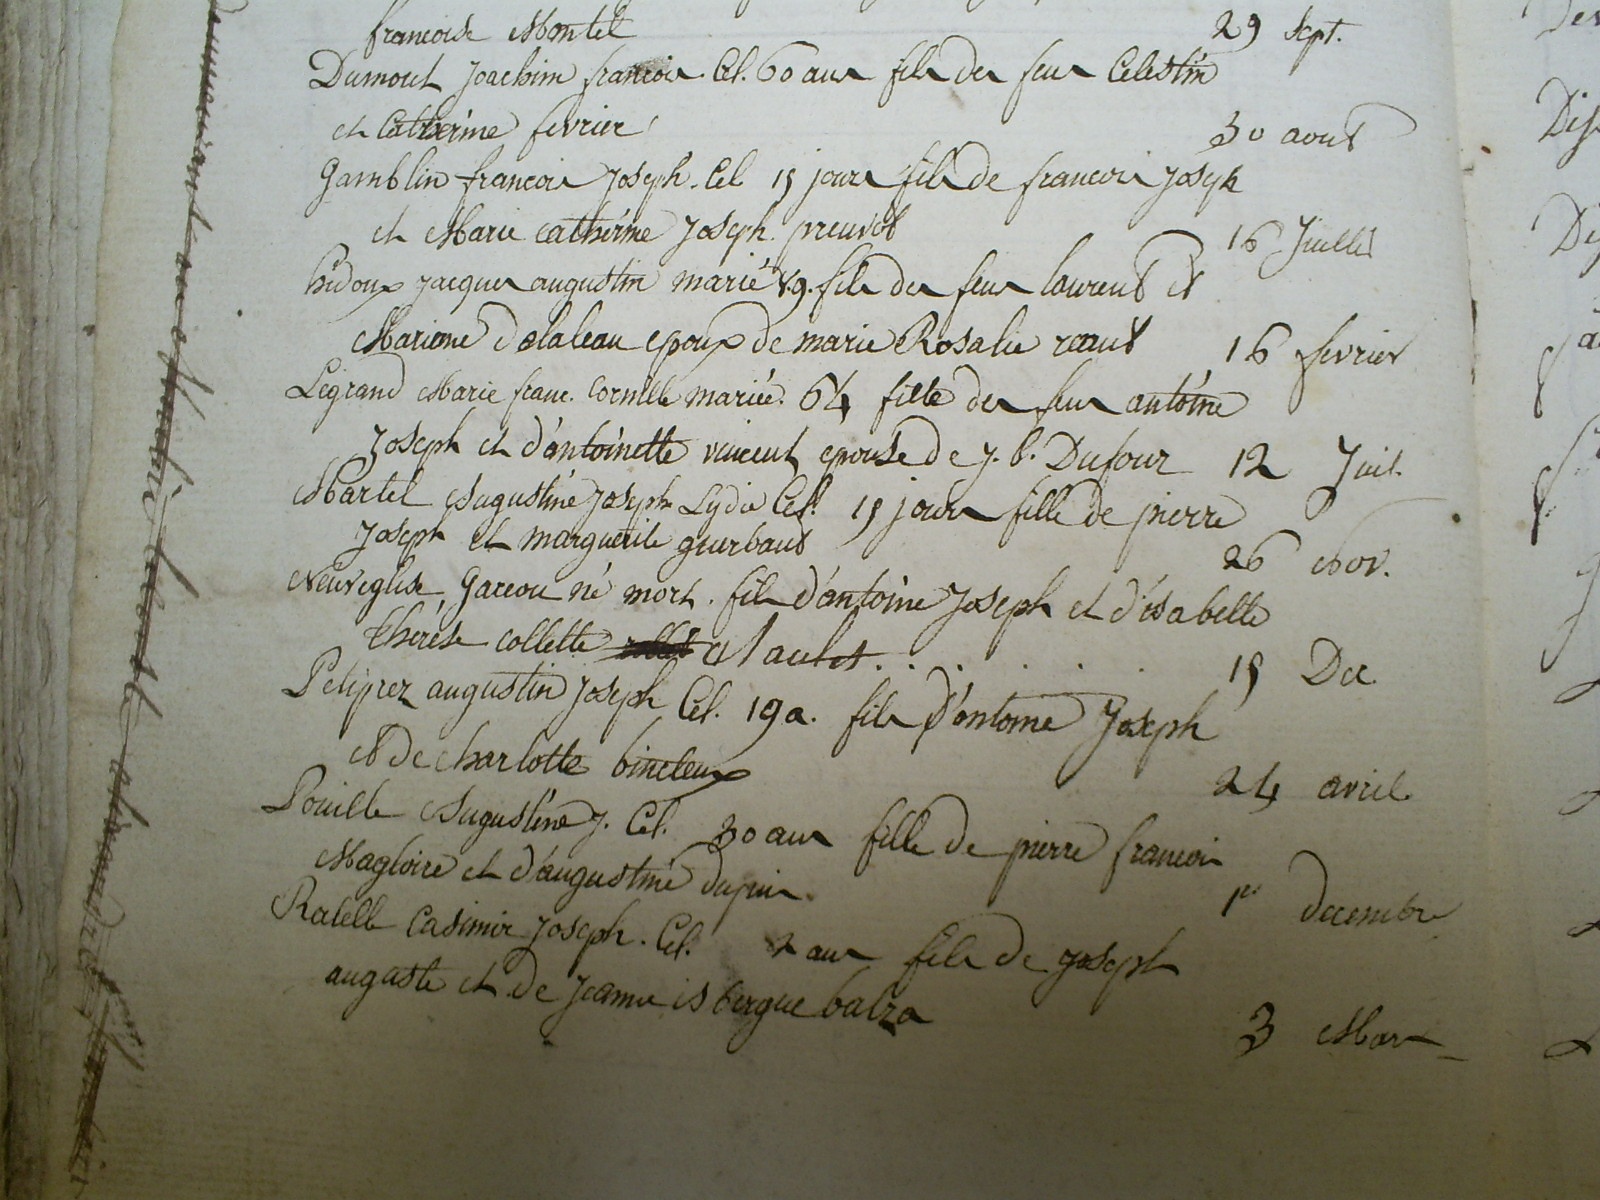 francoise Montel 29 Sept.
Dumont Joachim francois Cel. 60 ans fils des feus Celestin
et Catherine fevrier 30 aout
Gamblin francois Joseph. Cel 15 jours fils de francois Joseph
et Marie catherine Joseph preuvot 16 Juillet
hédoux jacques augustin marié fils des feus laurent et
Mariane Delaleau epoux de marie Rosalie 16 fevrier
Legrand Marie franc. Cornille mariée. 64 fille des feus antoine
Joseph et d'antoinette vincent epouse de j. b. Dufour 12 Juil.
Martel Augustine Joseph Lydie Cel. 15 jours fille de pierre
Joseph et marguerite gourbaut 26 Nov.
Neuveglise Garcon né mort. fils d'antoine Joseph et d'isabelle
thérèse collette 15 Dec
Petiprez augustin Joseph Cel. 19 a. fils d'antoine Joseph
et de charlotte bincteux 24 avril
Pouille Augustine J. Cel. 30 ans fille de pierre francois
Magloire et d'augustine dupuis 1er decembre
Ratelle Casimir Joseph. Cel. 2 ans fils de joseph
auguste et de Jeanne isbergue balza 3 Mars